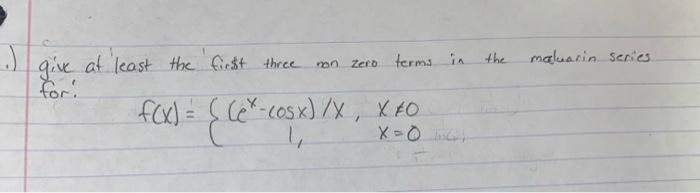 .) give at least the first three non zero terms in the maluarin series
for:
f(x) = { (e^x - cosx) / x , x ≠ 0
1, x = 0